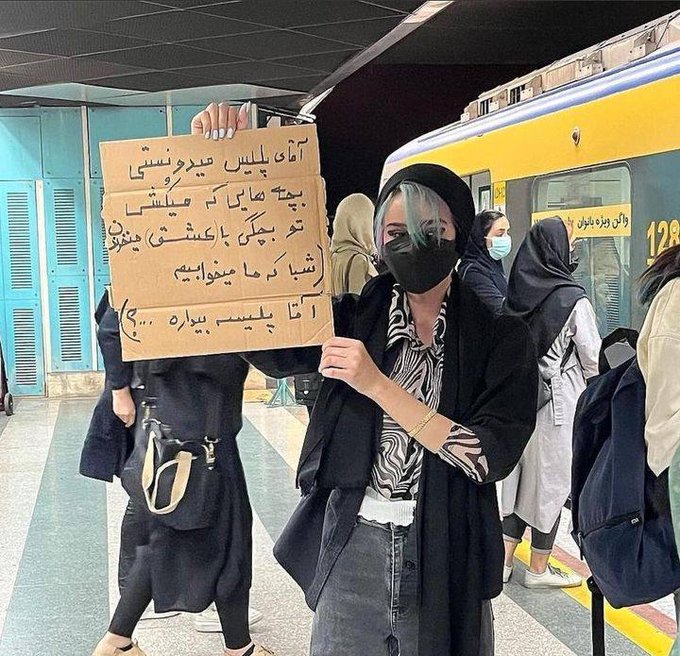 آقای پلیس میدونستی
بچه هایی که میکُشی
تو بچگی با (عشق) میخوندن
(شبا که ما میخوابیم
آقا پلیسه بیداره ...؟)
واگن ویژه بانوان
128